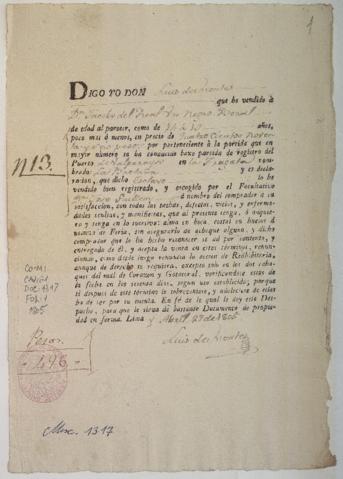 1
DIGO YO DON Luis des Montes
que he vendido à
Dn. Jacobo del Real Un Negro Bozal
de edad al parecer, como de 24 à 30 años,
poco mas ó menos, en precio de Quatro Cientos Noven-
ta y seis pesos: por perteneciente à la partida que en
mayor número se ha conducido baxo partida de registro del
Puerto de Valparayso en la Fragata nom-
brada y es decla-
racion, que dicho Esclavo lo he
vendido bien registrado, y escogido por el Facultativo
à nombre del comprador a su
satisfaccion, con todas sus tachas, defectos, vicios, y enferme-
dades ocultas, y manifiestas, que al presente tenga, ó adquie-
ra y tenga en lo sucesivo: alma en boca, costal en huesos à
usanza de Feria, sin asegurarlo de achaque alguno, y dicho
comprador que lo ha hecho reconocer se dá por contento, y
entregado de él, y acepta la venta en estos términos, renun-
ciando, como desde luego renuncia la accion de Redhibitoria,
aunque de derecho la requiera, excepto solo en los dos acha-
ques del mal de Corazon y Gotacoral, verificandose estas de
la fecha en los sesenta dias, segun uso establecido; porque
si despues de este término le sobreviniese, y adoleciese de ellas
ha de ser por su cuenta. En fé de lo qual le doy este Des-
pacho, para que le sirva de bastante Documento de propie-
dad en forma. Lima y Abril 27 de 1805
Luis des Montes
N 13.
Doc: 1317
Fol: 1
1805
Pesos.
496
Misc. 1317